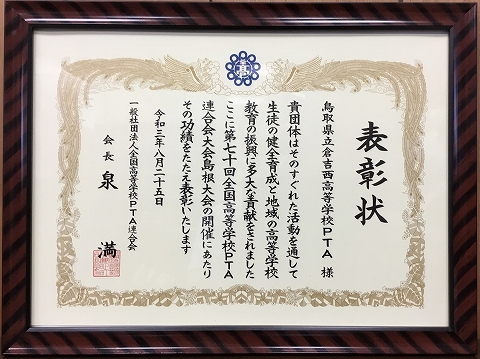 表彰状
鳥取県立倉吉西高等学校PTA 様
貴団体はそのすぐれた活動を通して
生徒の健全育成と地域の高等学校
教育の振興に多大な貢献をされました
ここに第七十回全国高等学校PTA
連合会大会島根大会の開催にあたり
その功績をたたえ表彰いたします
令和三年八月二十五日
一般社団法人全国高等学校PTA連合会
会長 泉 満
高